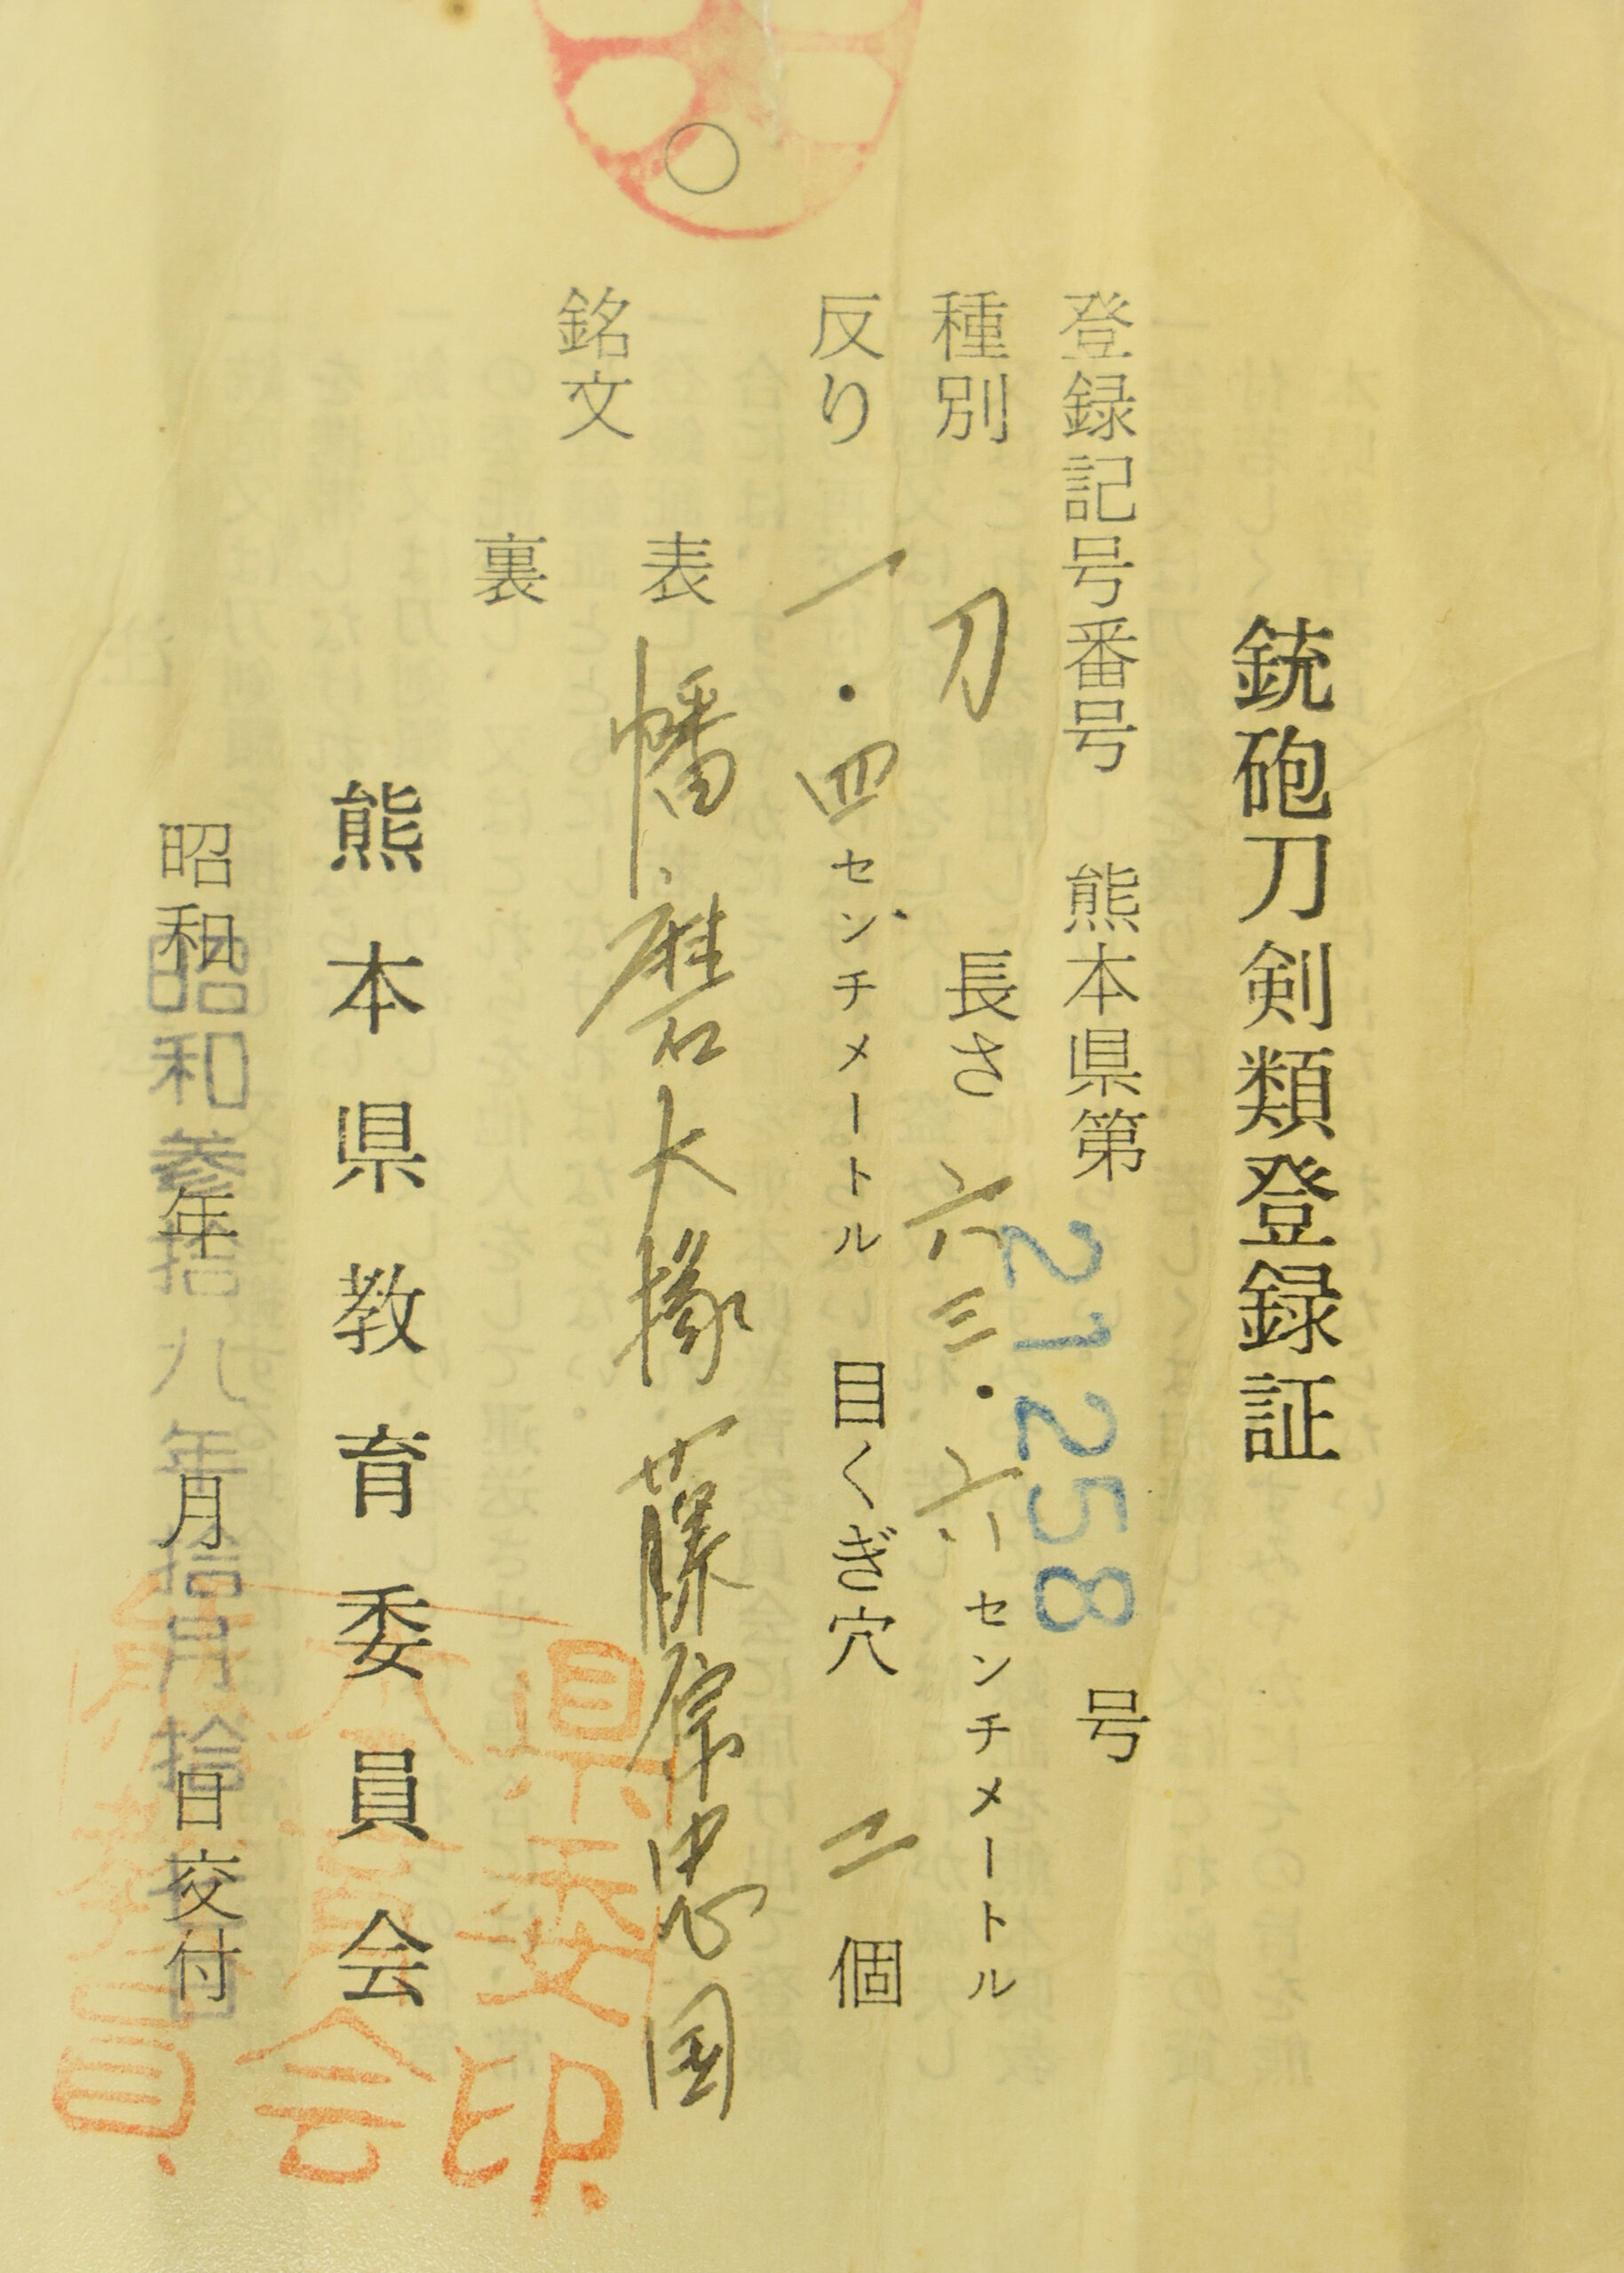 銃砲刀剣類登録証
登録記号番号 熊本県第 21258 号
種別 刀 長さ 六三・六センチメートル
反り 一・四センチメートル 目くぎ穴 二 個
銘文
表 幡磨大掾藤原忠国
裏
熊本県教育委員会
昭和 年 月 日交付
昭和参拾八年拾月拾
県委印
会
員